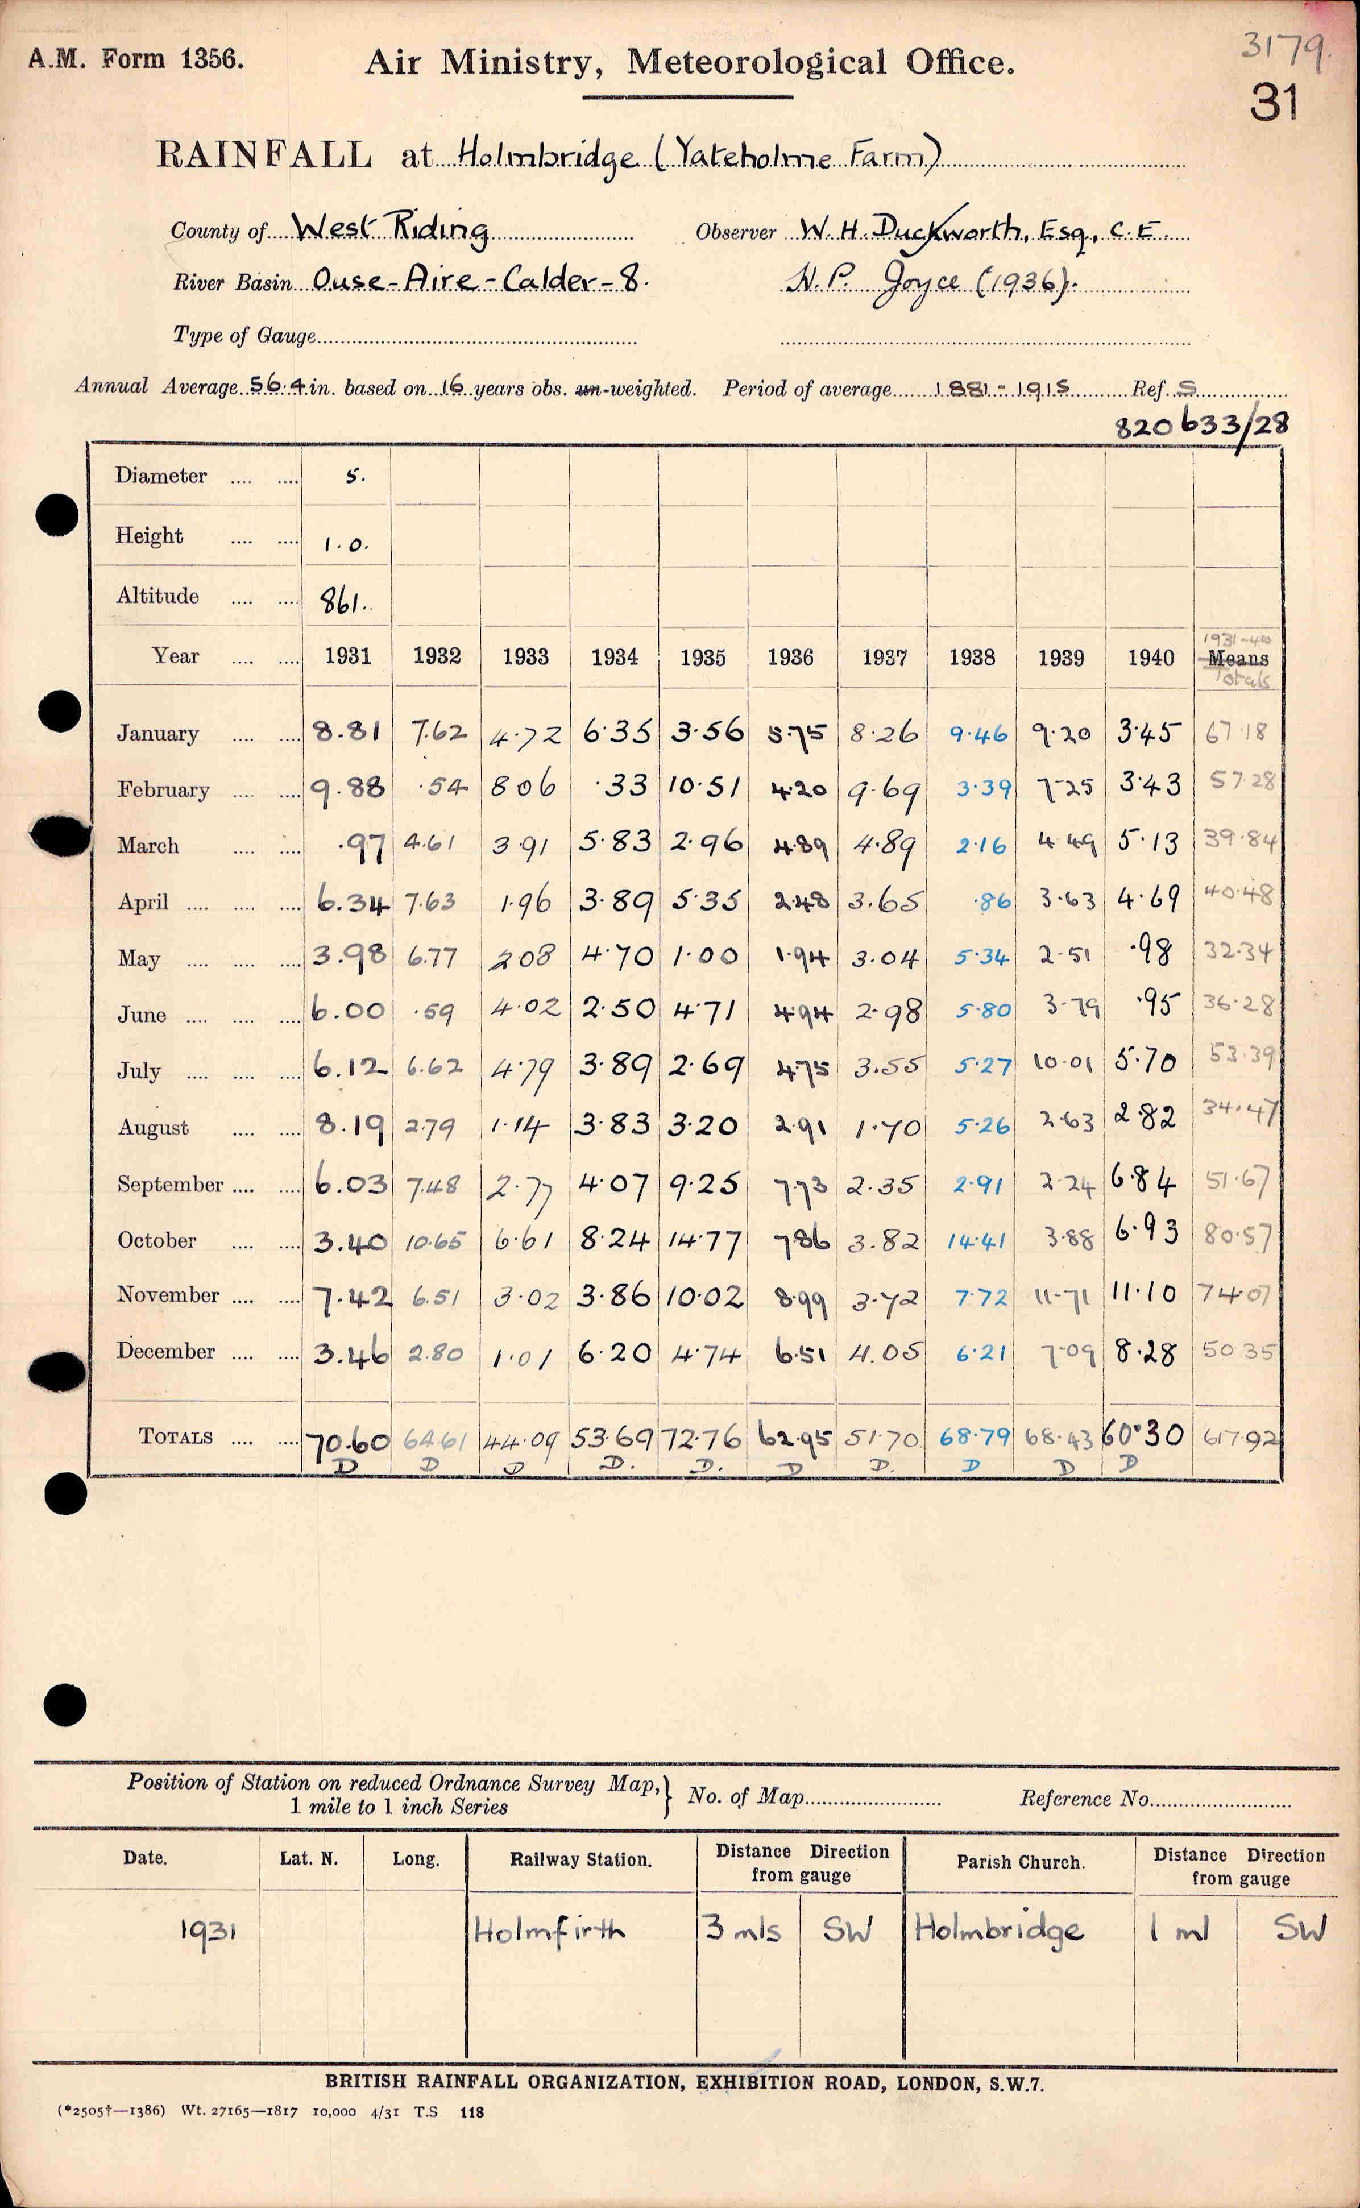 A.M. Form 1356.
Air Ministry, Meteorological Office.
3179.
31
RAINFALL at Holmbridge (Yateholme Farm)
County of West Riding Observer W. H. Duckworth, Esq., C.E.
River Basin Ouse-Aire-Calder-8. H. P. Joyce (1936).
Type of Gauge
Annual Average 56.4 in. based on 16 years obs. un-weighted. Period of average 1881-1915 Ref. S
820633/28
Diameter 5.
Height 1.0.
Altitude 861.
1931-40
Year 1931 1932 1933 1934 1935 1936 1937 1938 1939 1940 Means
Totals
January 8.81 7.62 4.72 6.35 3.56 5.75 8.26 9.46 9.20 3.45 67.18
February 9.88 .54 8 06 .33 10.51 4.20 9.69 3.39 7.25 3.43 57.28
March .97 4.61 3.91 5.83 2.96 4.89 4.89 2.16 4.49 5.13 39.84
April 6.34 7.63 1.96 3.89 5.35 2.48 3.65 .86 3.63 4.69 40.48
May 3.98 6.77 2 08 4.70 1.00 1.94 3.04 5.34 2.51 .98 32.34
June 6.00 .59 4.02 2.50 4.71 4.94 2.98 5.80 3.79 .95 36.28
July 6.12 6.62 4.79 3.89 2.69 4.75 3.55 5.27 10.01 5.70 53.39
August 8.19 2.79 1.14 3.83 3.20 2.91 1.70 5.26 2.63 2.82 34.47
September 6.03 7.48 2.77 4.07 9.25 7.73 2.35 2.91 2.24 6.84 51.67
October 3.40 10.65 6.61 8.24 14.77 7.86 3.82 14.41 3.88 6.93 80.57
November 7.42 6.51 3.02 3.86 10.02 8.99 3.72 7.72 11.71 11.10 74.07
December 3.46 2.80 1.01 6.20 4.74 6.51 4.05 6.21 7.09 8.28 50.35
TOTALS 70.60 64.61 44.09 53.69 72.76 62.95 51.70 68.79 68.43 60.30 617.92
D D D D. D. D D. D D D
Position of Station on reduced Ordnance Survey Map,} No. of Map Reference No.
1 mile to 1 inch Series
Date. Lat. N. Long. Railway Station. Distance Direction from gauge Parish Church. Distance Direction from gauge
1931 Holmfirth 3 mls SW Holmbridge 1 ml SW
BRITISH RAINFALL ORGANIZATION, EXHIBITION ROAD, LONDON, S.W.7.
(*2505†—1386) Wt. 27165—1817 10,000 4/31 T.S 118